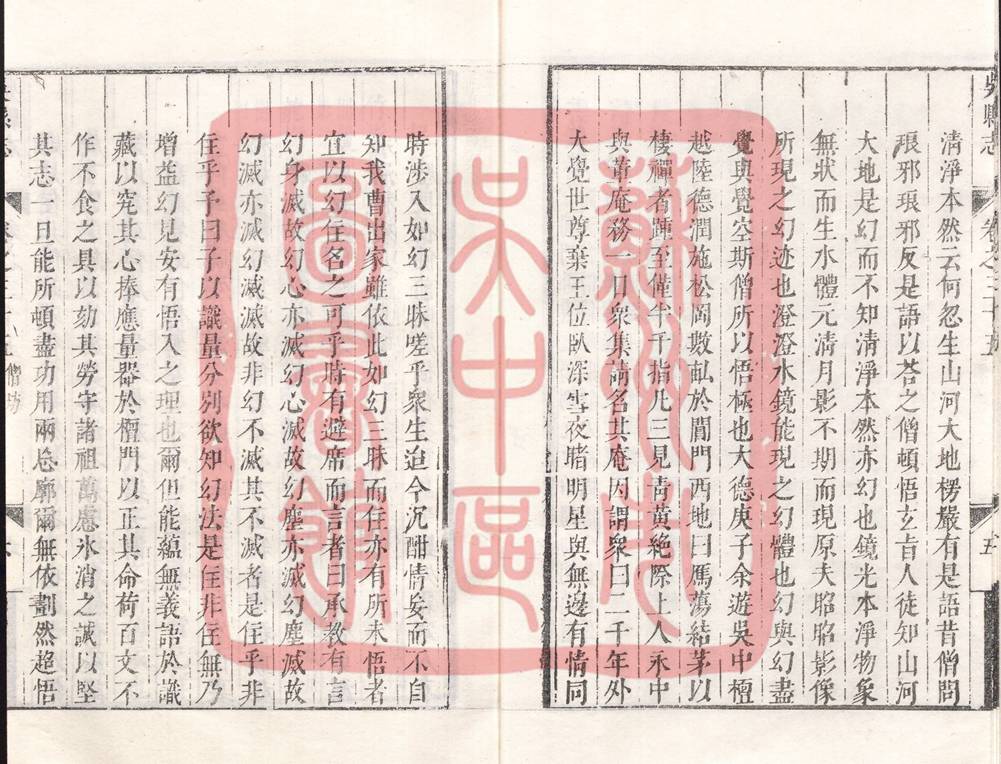 吳縣志
卷之二十五
五
清淨本然云何忽生山河大地楞嚴有是語昔僧問
琅邪琅邪反是語以荅之僧頓悟玄旨人徒知山河
大地是幻而不知清淨本然亦幻也鏡光本淨物象
無狀而生水體元清月影不期而現原夫昭昭影像
所現之幻迹也澄澄水鏡能現之幻體也幻與幻盡
覺與覺空斯僧所以悟極也大德庚子余遊吳中檀
越陸德潤施松岡數畝於閶門西地曰鴈蕩結茅以
棲禪者踵至僅半千指凡三見青黃絶際上人永中
與董庵務一日衆集請名其庵因謂衆曰二千年外
大覺世尊棄王位臥深雪夜睹明星與無邊有情同
時涉入如幻三昧嗟乎衆生迨今沉酣情妄而不自
知我曹出家雖依此如幻三昧而住亦有所未悟者
宜以幻住名之可乎時有避席而言者曰承教有言
幻身滅故幻心亦滅幻心滅故幻塵亦滅幻塵滅故
幻滅亦滅幻滅滅故非幻不滅其不滅者是住乎非
住乎予曰子以識量分別欲知幻法是住非住無乃
增益幻見安有悟入之理也爾但能蘊無義語於識
藏以究其心捧應量器於檀門以正其命荷百丈不
作不食之具以効其勞守諸祖萬慮氷消之誡以堅
其志一旦能所頓盡功用兩忘廓爾無依劃然超悟
僧坊
蘇州市
吳中區
圖書館